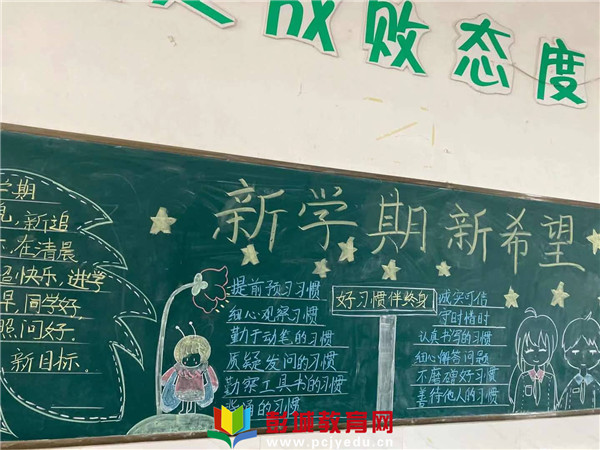 成败态度
学期
新追
在清晨
快乐,进学
早,同学好
照问好
新目标.
新学期 新希望
提前预习习惯
细心观察习惯
勤于动笔的习惯
质疑发问的习惯
勤察工具书的习惯
背诵的习惯
好习惯伴终身
诚实可信
守时惜时
认真书写的习惯
细心解答问题
不磨蹭好习惯
善待他人的习惯
彭城教育网
www.pcjyedu.cn